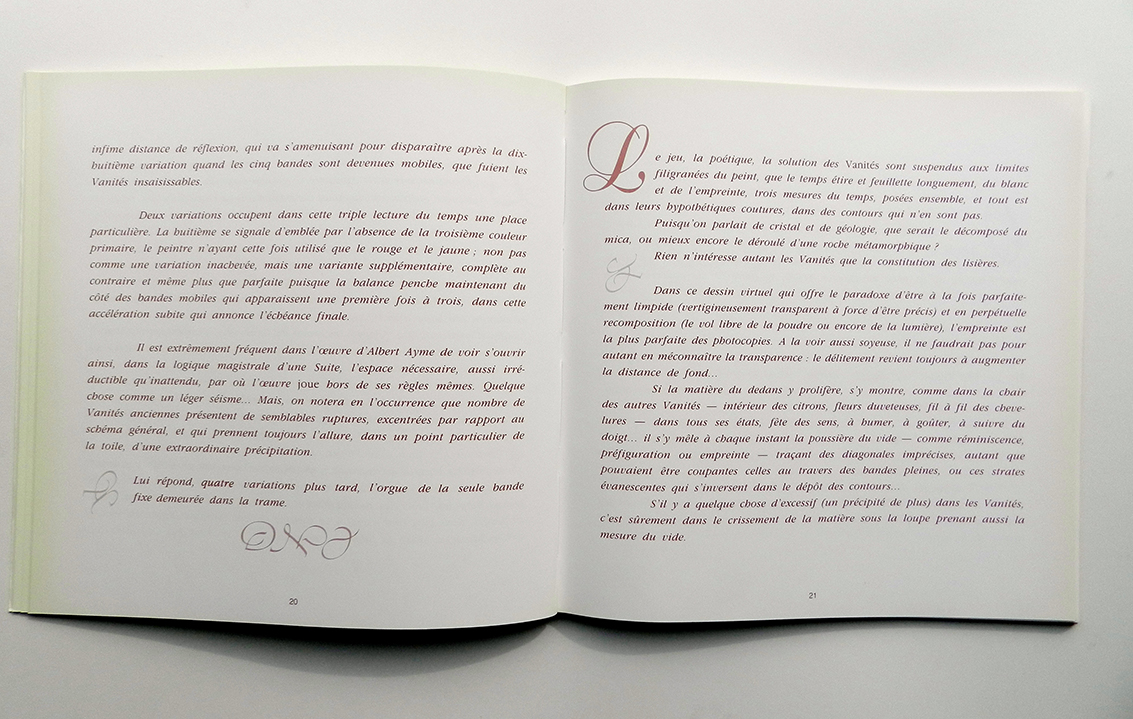 infime distance de réflexion, qui va s'amenuisant pour disparaître après la dix-
huitième variation quand les cinq bandes sont devenues mobiles, que fuient les
Vanités insaisissables.
Deux variations occupent dans cette triple lecture du temps une place
particulière. La huitième se signale d'emblée par l'absence de la troisième couleur
primaire, le peintre n'ayant cette fois utilisé que le rouge et le jaune ; non pas
comme une variation inachevée, mais une variante supplémentaire, complète au
contraire et même plus que parfaite puisque la balance penche maintenant du
côté des bandes mobiles qui apparaissent une première fois à trois, dans cette
accélération subite qui annonce l'échéance finale.
Il est extrêmement fréquent dans l'œuvre d'Albert Ayme de voir s'ouvrir
ainsi, dans la logique magistrale d'une Suite, l'espace nécessaire, aussi irré-
ductible qu'inattendu, par où l'œuvre joue hors de ses règles mêmes. Quelque
chose comme un léger séisme... Mais, on notera en l'occurrence que nombre de
Vanités anciennes présentent de semblables ruptures, excentrées par rapport au
schéma général, et qui prennent toujours l'allure, dans un point particulier de
la toile, d'une extraordinaire précipitation.
Lui répond, quatre variations plus tard, l'orgue de la seule bande
fixe demeurée dans la trame.
20
Le jeu, la poétique, la solution des Vanités sont suspendus aux limites
filigranées du peint, que le temps étire et feuillette longuement, du blanc
et de l'empreinte, trois mesures du temps, posées ensemble, et tout est
dans leurs hypothétiques coutures, dans des contours qui n'en sont pas.
Puisqu'on parlait de cristal et de géologie, que serait le décomposé du
mica, ou mieux encore le déroulé d'une roche métamorphique ?
Rien n'intéresse autant les Vanités que la constitution des lisières.
Dans ce dessin virtuel qui offre le paradoxe d'être à la fois parfaite-
ment limpide (vertigineusement transparent à force d'être précis) et en perpétuelle
recomposition (le vol libre de la poudre ou encore de la lumière), l'empreinte est
la plus parfaite des photocopies. A la voir aussi soyeuse, il ne faudrait pas pour
autant en méconnaître la transparence : le délitement revient toujours à augmenter
la distance de fond...
Si la matière du dedans y prolifère, s'y montre, comme dans la chair
des autres Vanités — intérieur des citrons, fleurs duveteuses, fil à fil des cheve-
lures — dans tous ses états, fête des sens, à humer, à goûter, à suivre du
doigt... il s'y mêle à chaque instant la poussière du vide — comme réminiscence,
préfiguration ou empreinte — traçant des diagonales imprécises, autant que
pouvaient être coupantes celles au travers des bandes pleines, ou ces strates
évanescentes qui s'inversent dans le dépôt des contours...
S'il y a quelque chose d'excessif (un précipité de plus) dans les Vanités,
c'est sûrement dans le crissement de la matière sous la loupe prenant aussi la
mesure du vide.
21